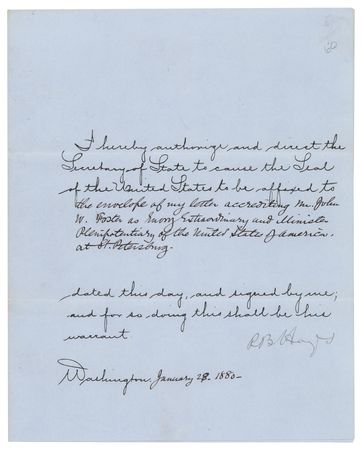 I hereby authorize and direct the
Secretary of State to cause the Seal
of the United States to be affixed to
the envelope of my letter accrediting Mr. John
W. Foster as Envoy Extraordinary and Minister
Plenipotentiary of the United States of America,
at St. Petersburg.
dated this day, and signed by me;
and for so doing this shall be his
warrant.
R B Hayes
Washington, January 28. 1880-